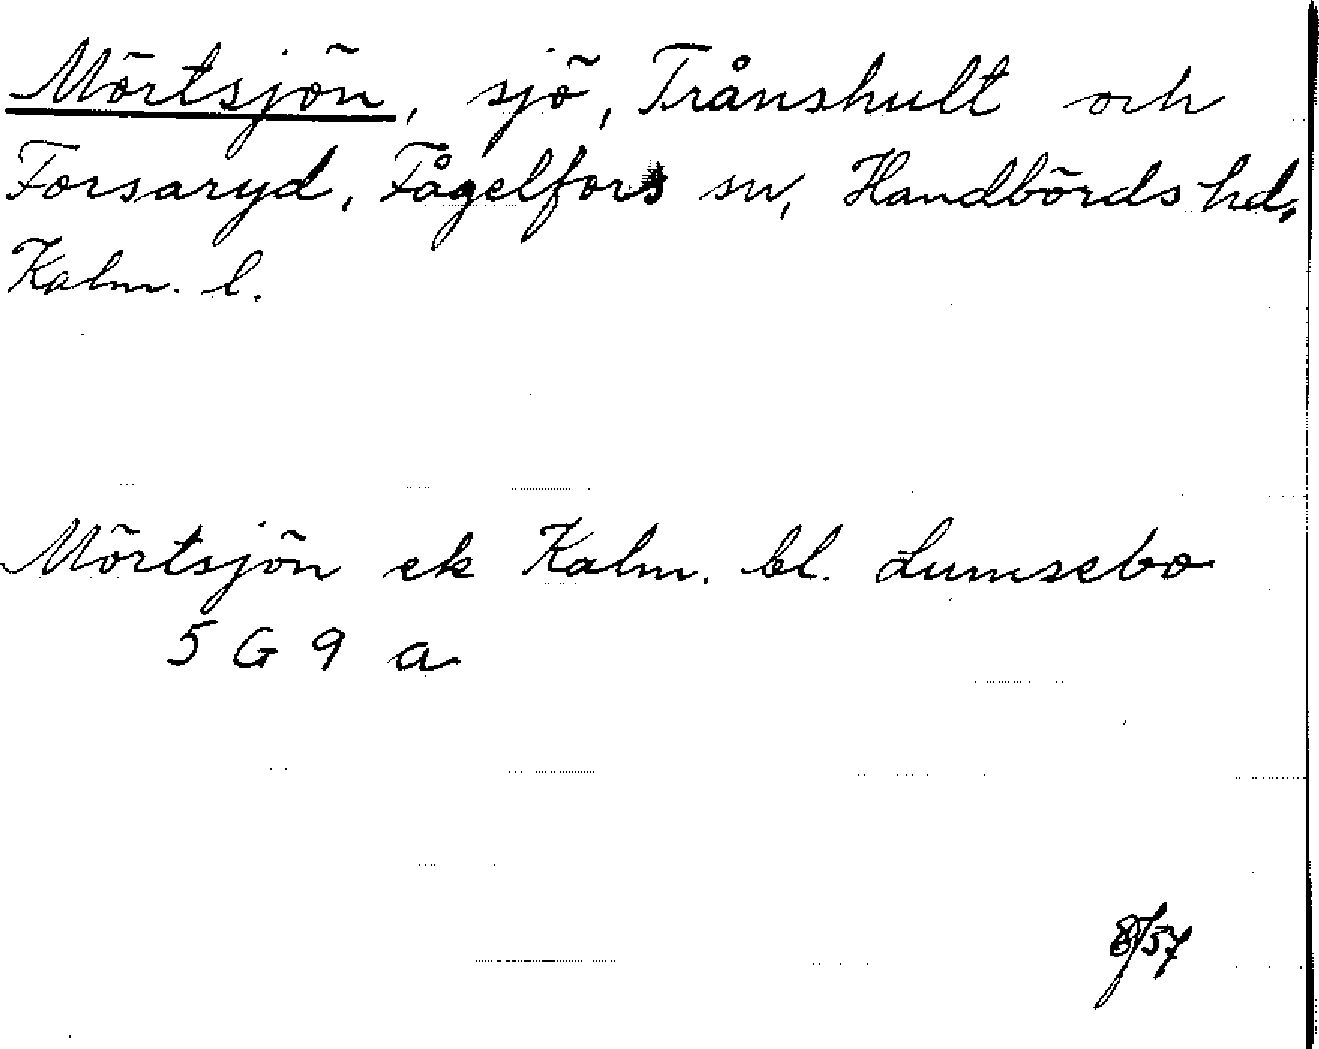 Mörtsjön, sjö, Trånshult och
Forsaryd, Fågelfors sn, Handbörds hd,
Kalm. l.
Mörtsjön ek Kalm. bl. Lumsebo
5 G 9 a